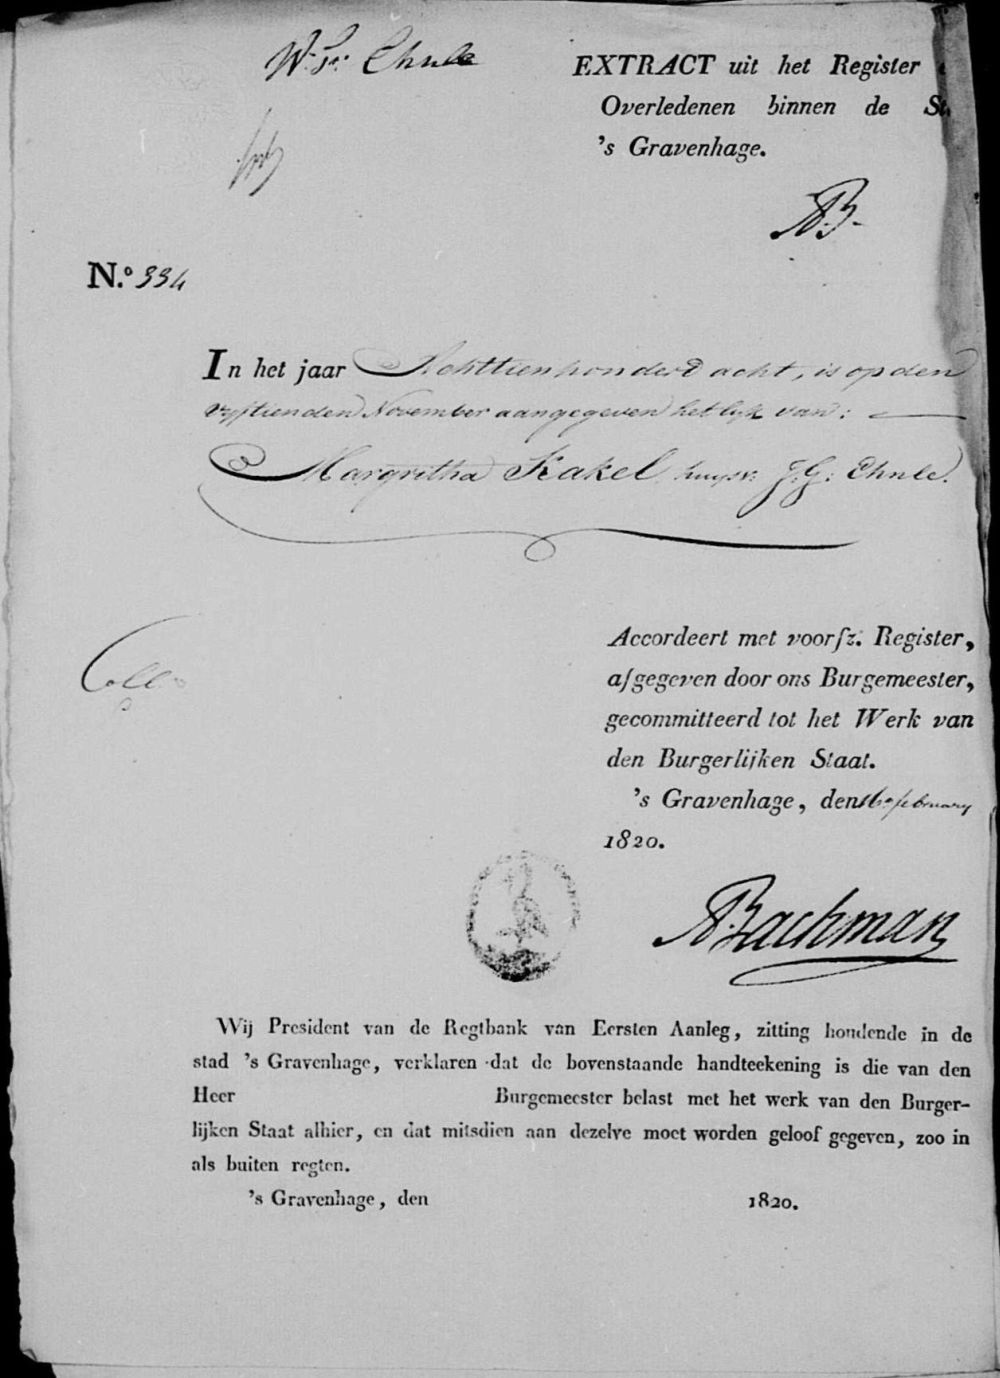 EXTRACT uit het Register
Overledenen binnen de
's Gravenhage.
AB.
N.º 334
In het jaar Achttienhonderd acht, is op den
vyftienden November aangegeven het lyk van:
Margritha Kakel huysv: J:G: Ehnle.
Accordeert met voorſz. Register,
afgegeven door ons Burgemeester,
gecommitteerd tot het Werk van
den Burgerlijken Staat.
's Gravenhage, den 16e february
1820.
A:Bachman
Wij President van de Regtbank van Eersten Aanleg, zitting houdende in de
stad 's Gravenhage, verklaren dat de bovenstaande handteekening is die van den
Heer Burgemeester belast met het werk van den Burger-
lijken Staat alhier, en dat mitsdien aan dezelve moet worden geloof gegeven, zoo in
als buiten regten.
's Gravenhage, den 1820.